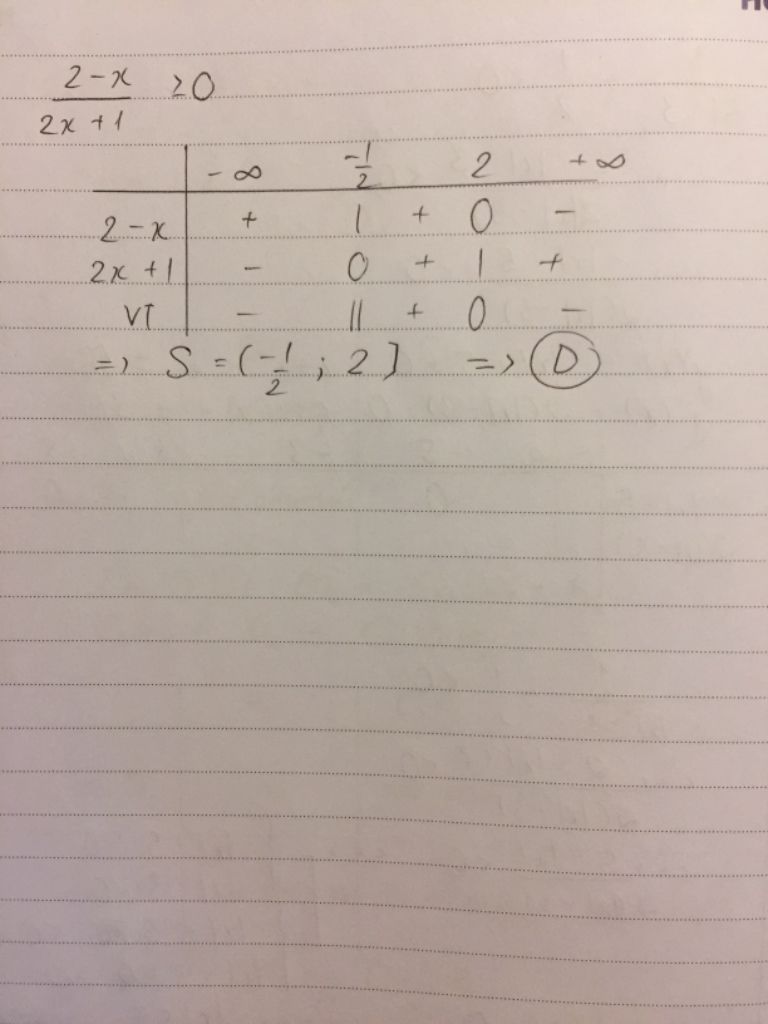 2-x
≥0
2x+1
-∞ -1/2 2 +∞
2-x + | + 0 -
2x+1 - 0 + | +
VT - || + 0 -
=> S = (-1/2 ; 2] => D